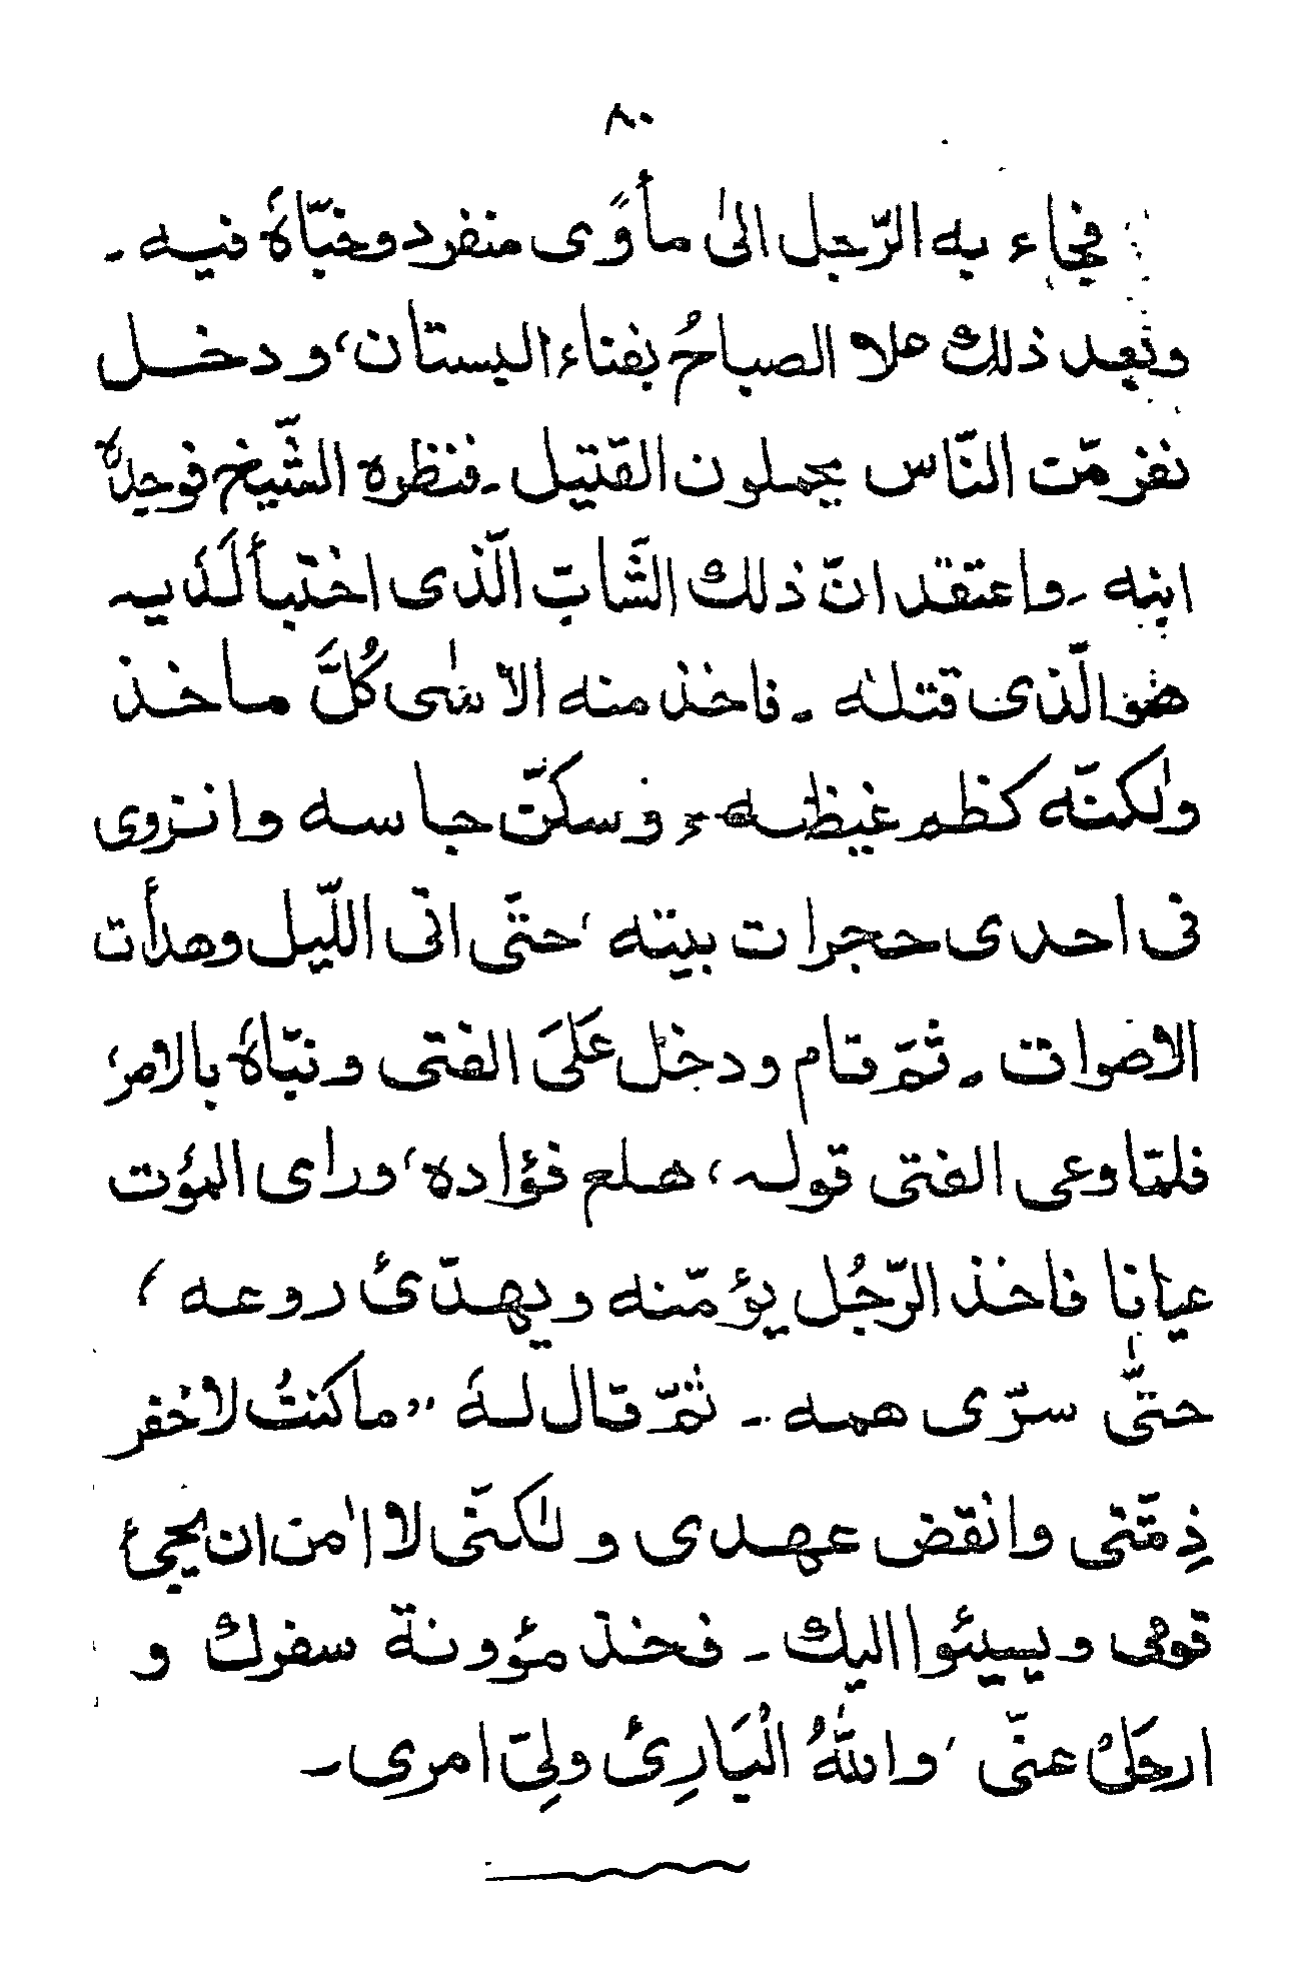 ٨٠
فجاء به الرّجل الىٰ مأوًى منفرد وخبّاهُ فيه ـ
وبعد ذلك علا الصباحُ بفناء البستان، و دخل
نفر مّن النّاس يحملون القتيل ـ فنظره الشّيخ فوجدهُ
ابنه ـ واعتقد انّ ذلك الشّابّ الّذى اختبأ لَدَيه
هو الّذى قتله ـ فاخذ منه الاسٰى كُلَّ ماخذ
ولٰكنّه كظم غيظه، وسكّن جاسه وانزوى
فى احدى حجرات بيته، حتّى اتى اللّيل وهدأت
الاصوات ـ ثمّ قام ودخل عَلَى الفتى ونبّاهُ بالامر،
فلمّا وعى الفتى قوله، هلع فؤاده، وراى المؤت
عيانا فاخذ الرّجُل يؤمّنه ويهدّئُ روعه،
حتّٰى سرّى همه ـ ثمّ قال لهُ ”ما كنتُ لاخفر
ذِمّتى وانقض عهدى و لٰكنّى لا اٰمن ان يجئ
قومى ويسيئوا اليك ـ فخذ مؤونة سفرك و
ارحَلْ عنّى، واللّٰهُ الْبَارِئُ ولِىّ امرى ـ